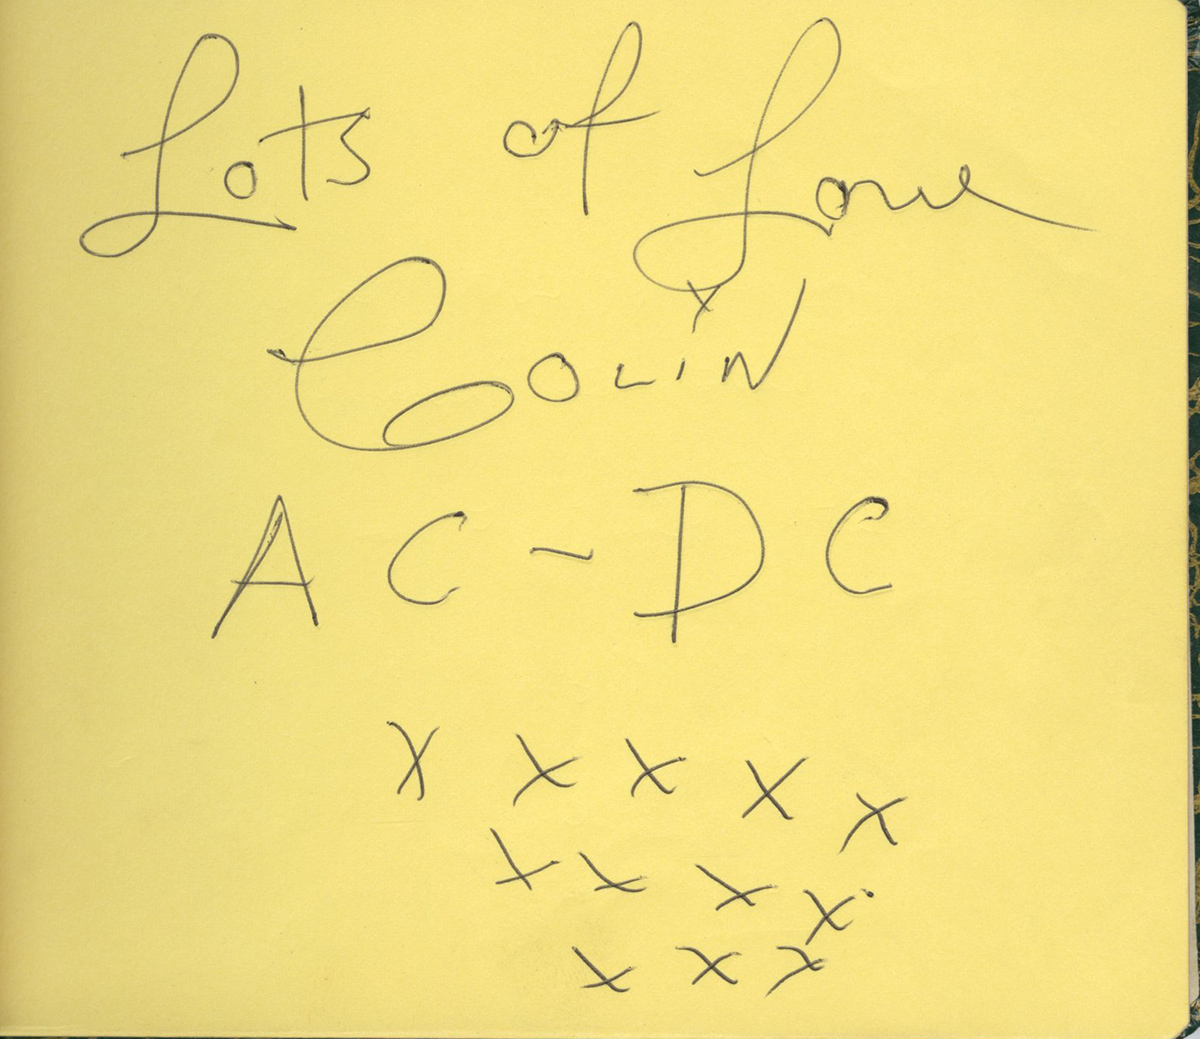 Lots of Love
Colin
AC-DC
x x x x x
x x x x
x x x